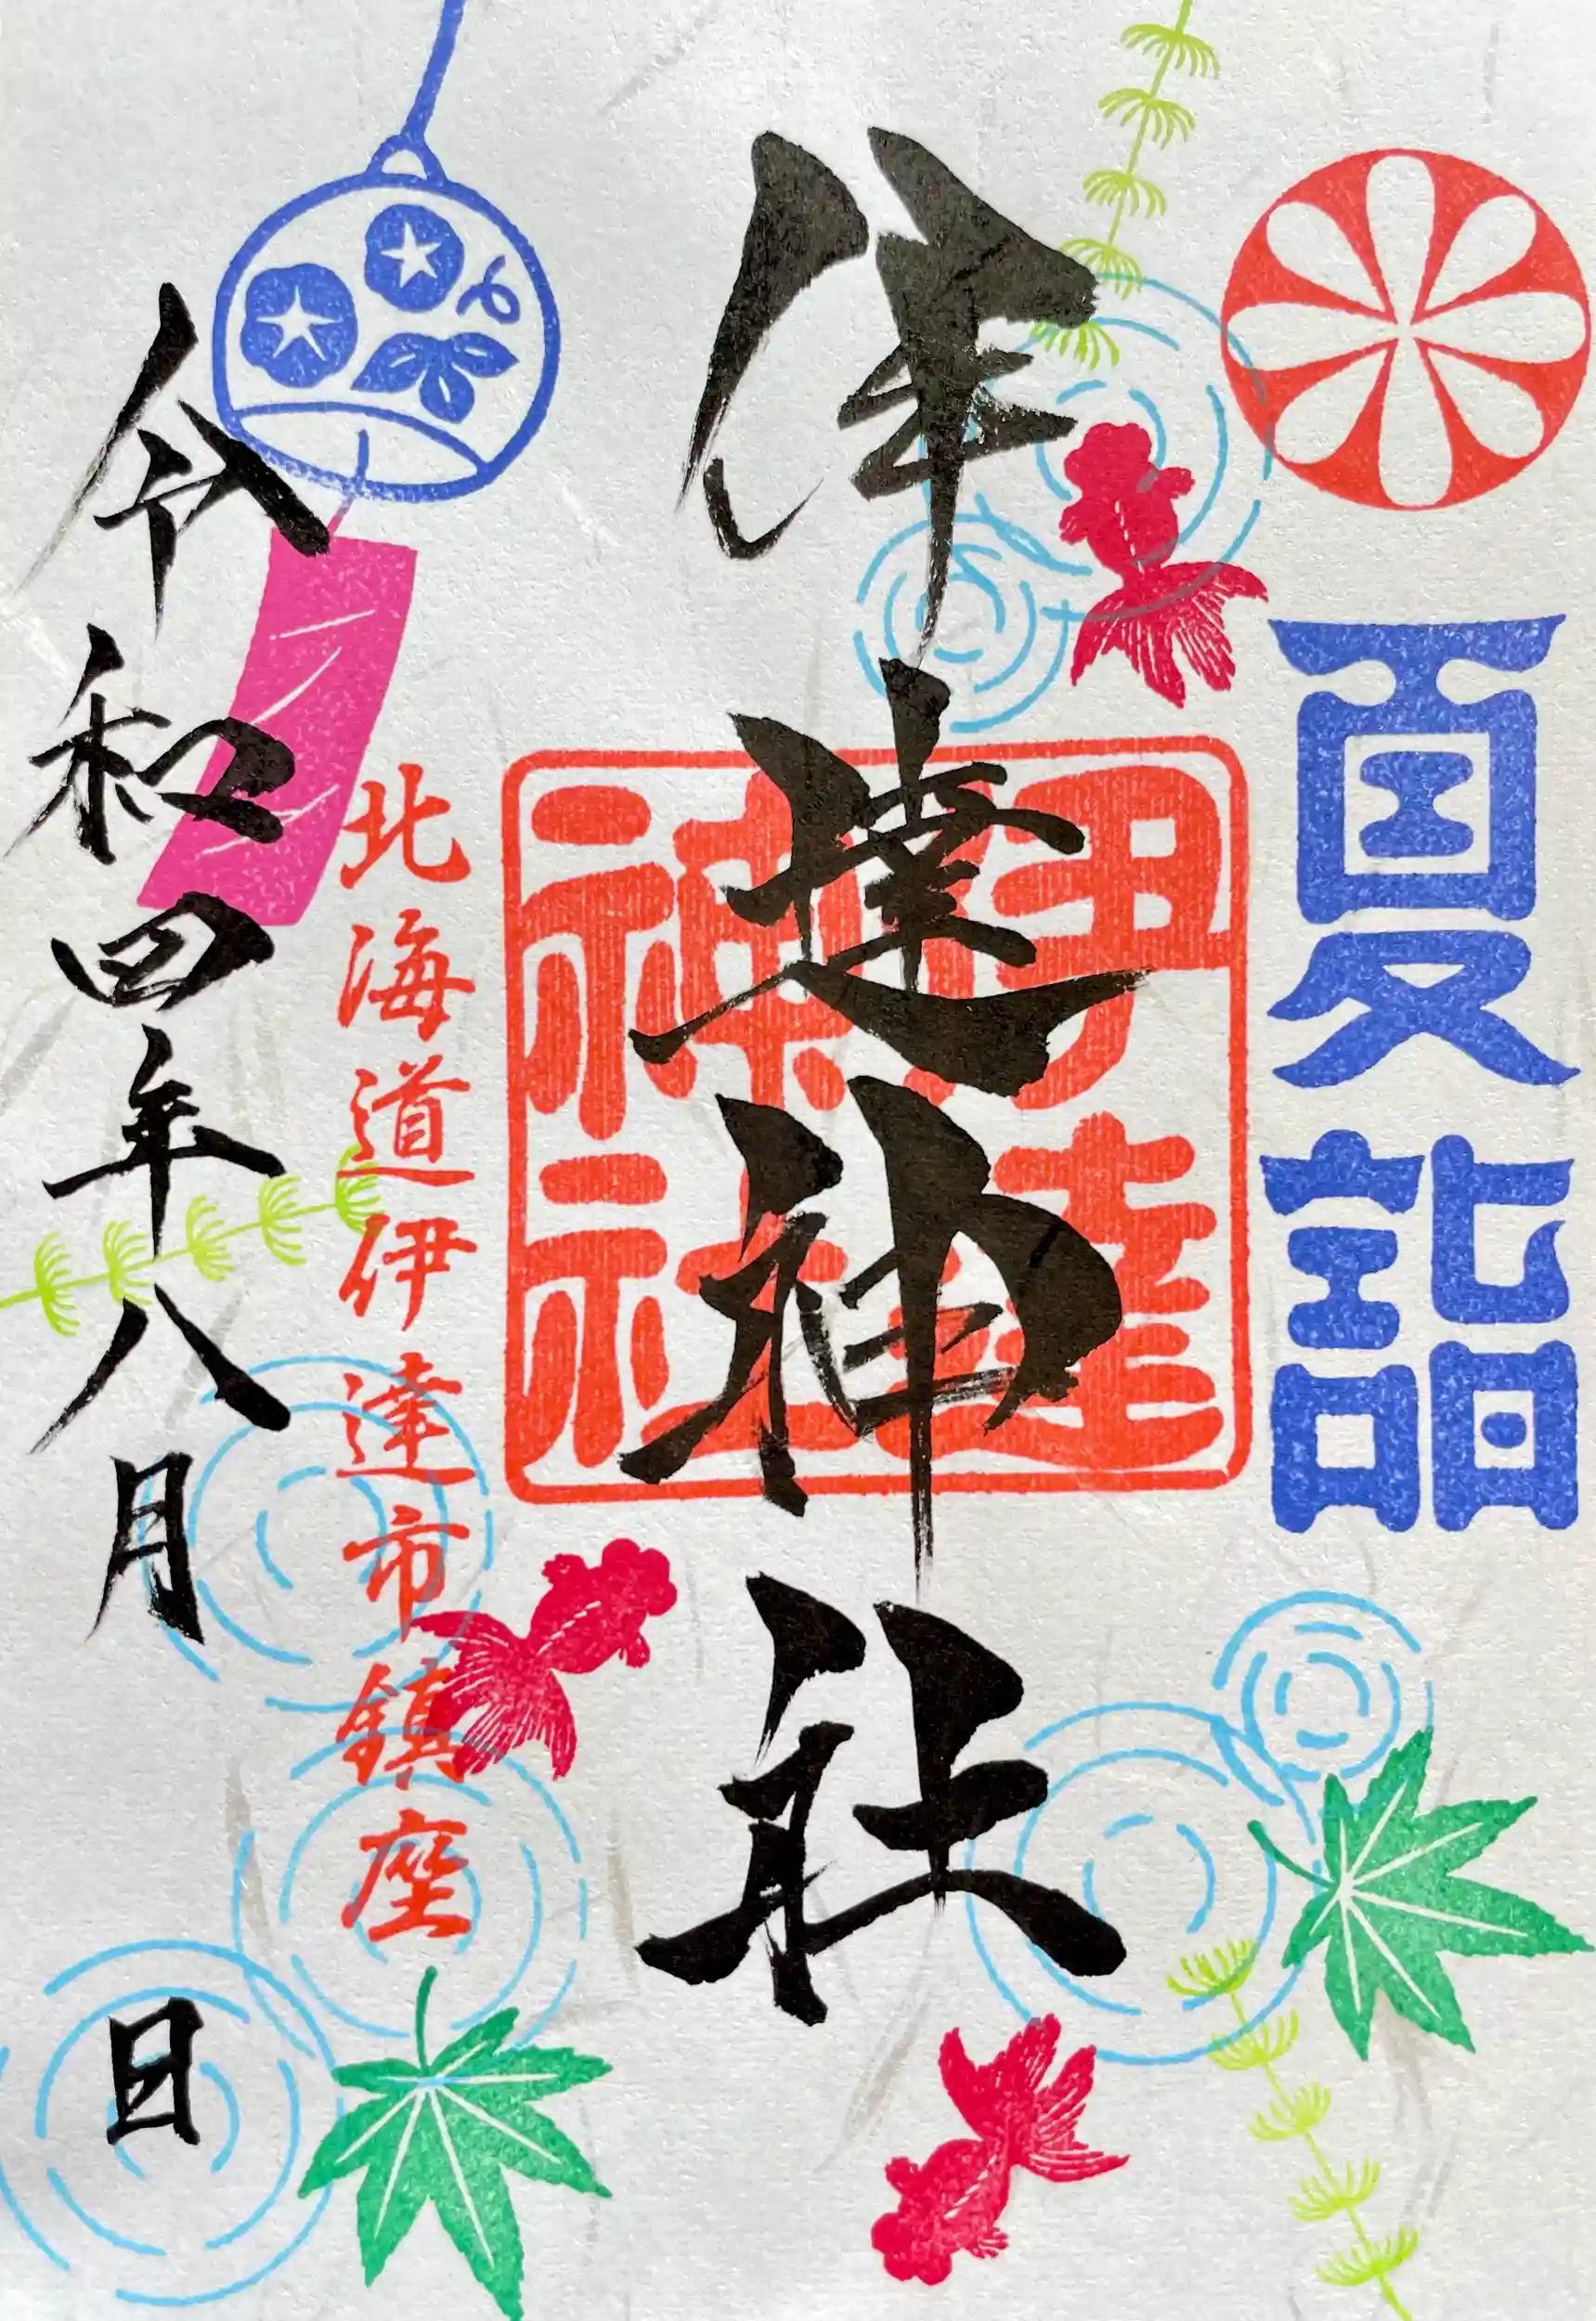 夏詣
伊達神社
伊達
神社
北海道伊達市鎮座
令和四年八月　日